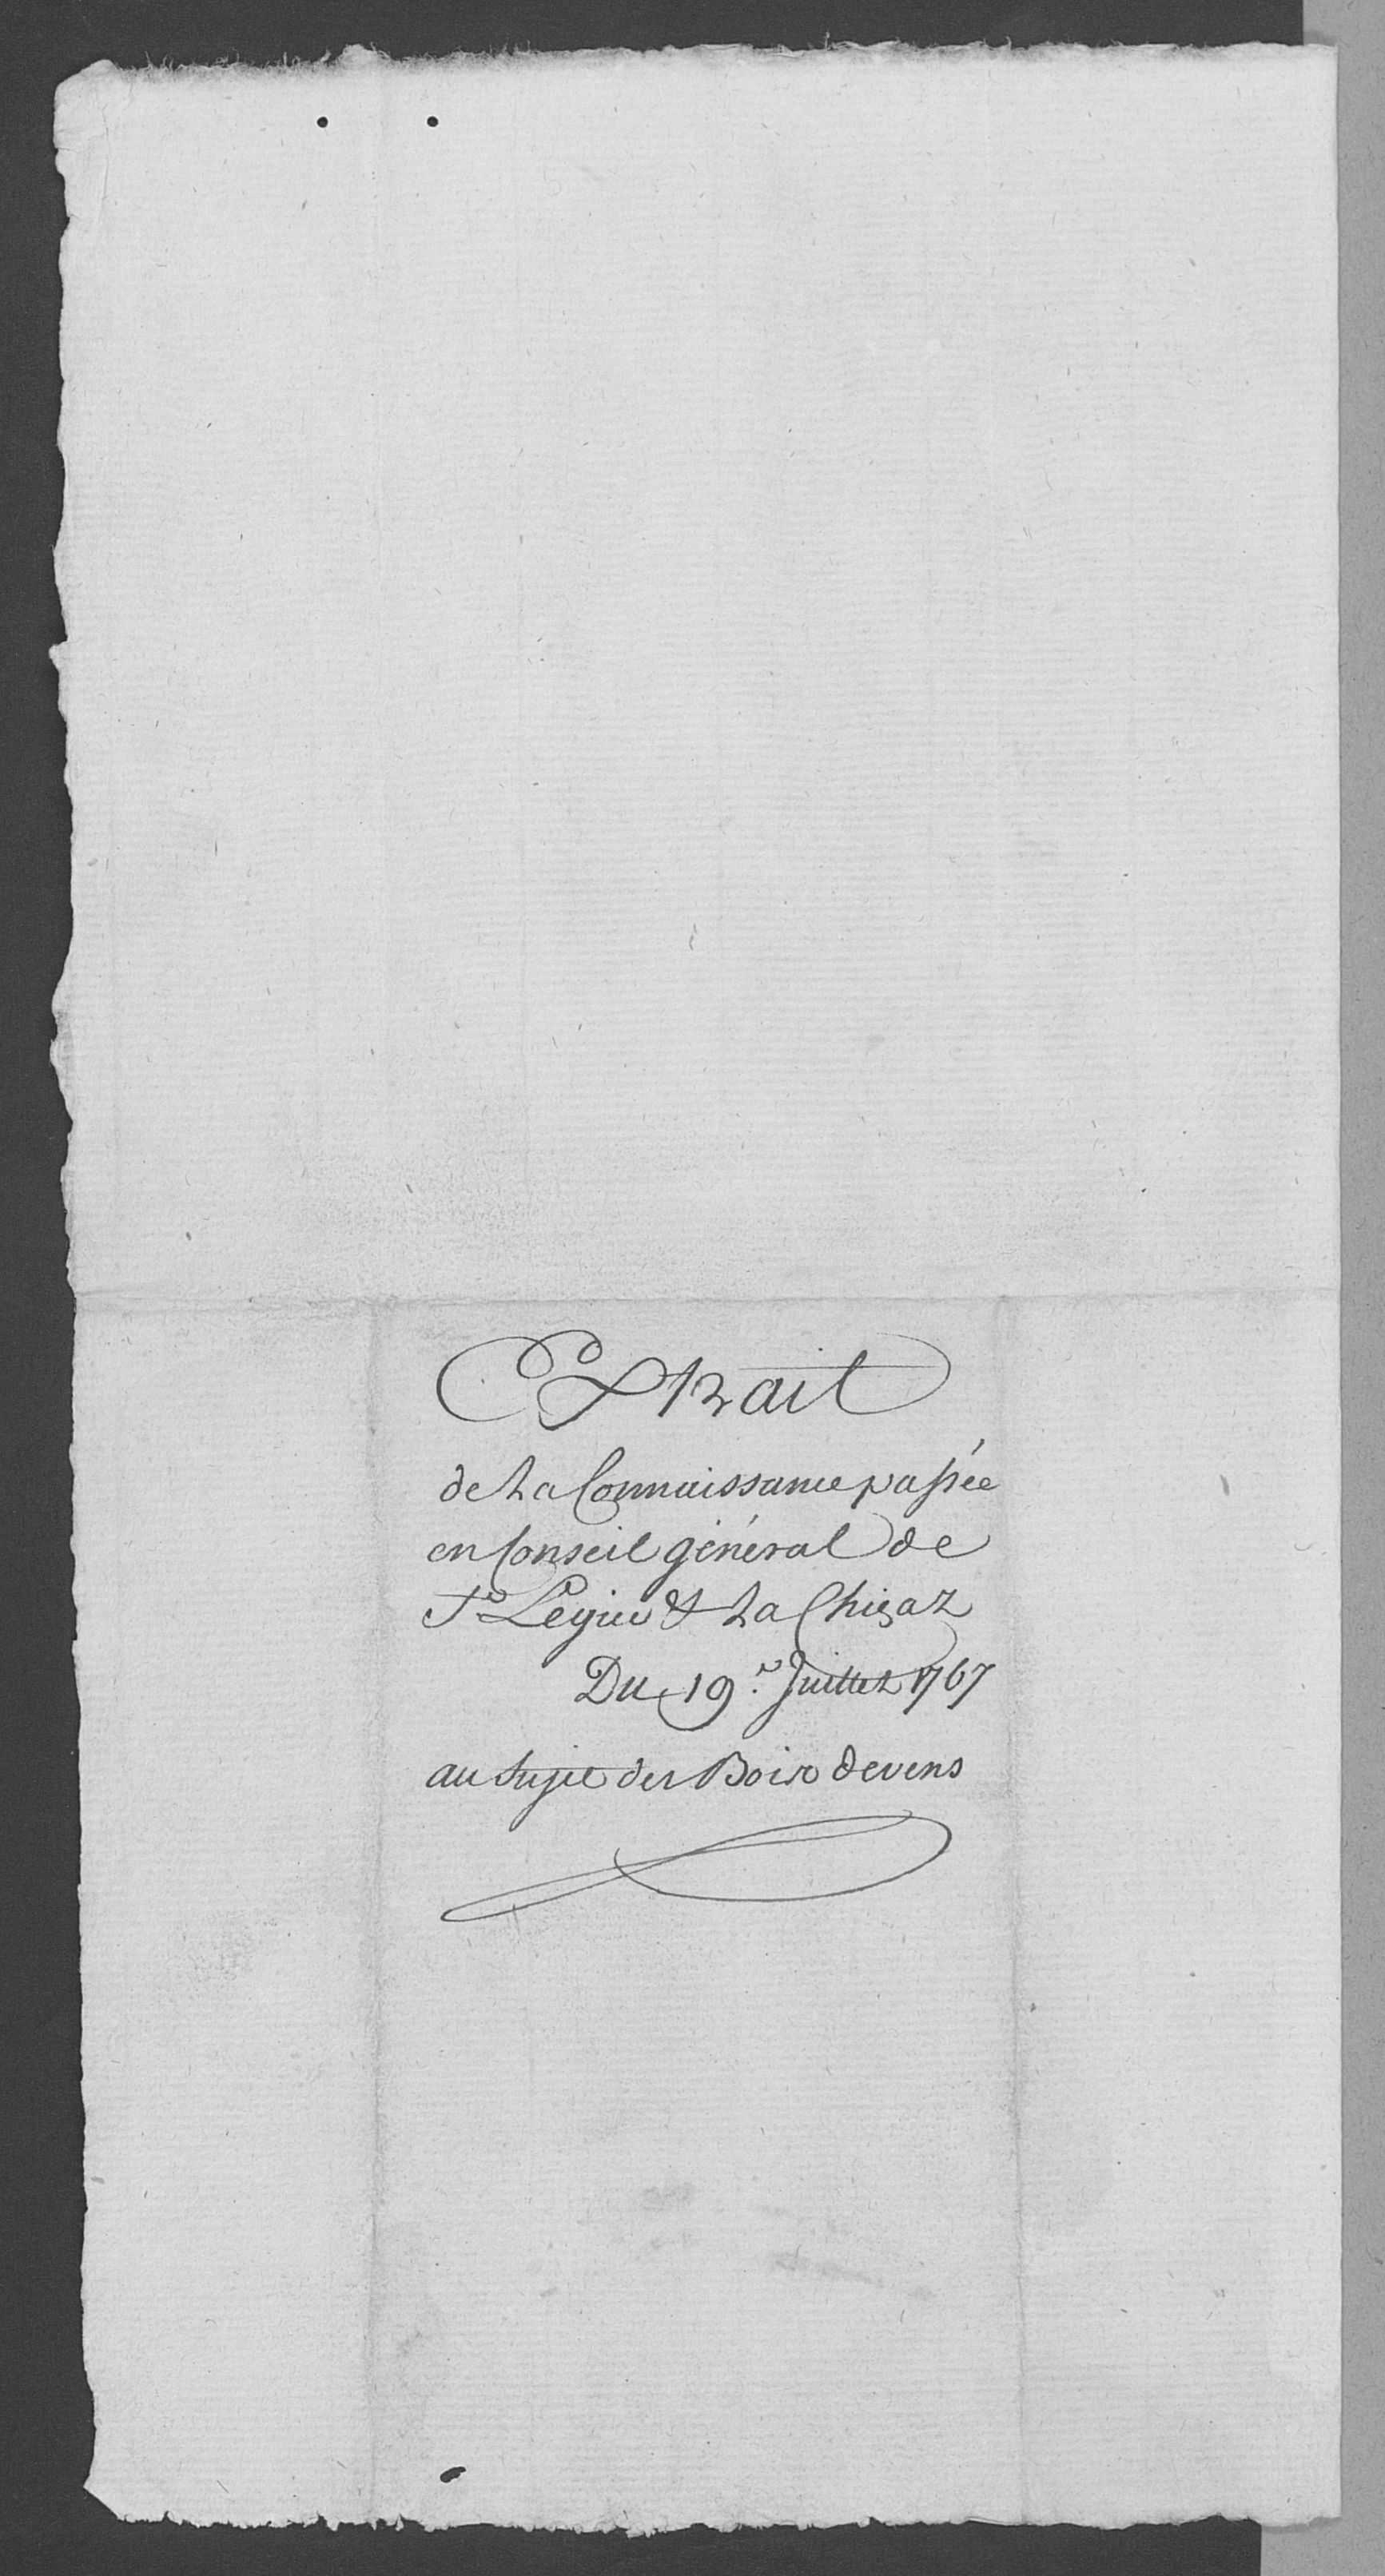 Extrait
de La Connaissance passée
en Conseil général de
St Legier & La Chiesaz
Du 19e. Juillet 1767
au Sujet des Bois devens